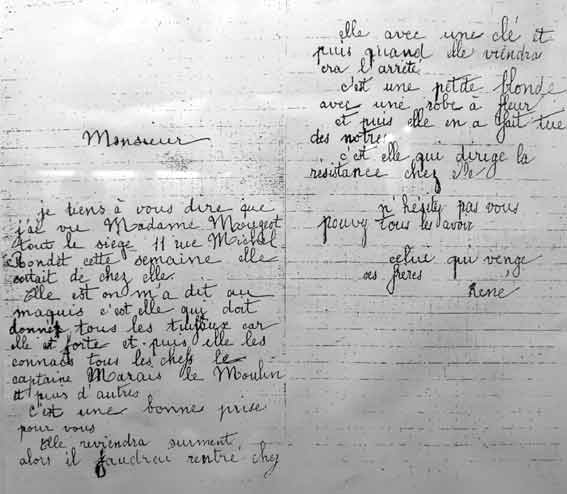 Monsieur
je tiens à vous dire que
j'ai vue Madame Mougeot
tout le siège 11 rue Michel
Bondet cette semaine elle
sortait de chez elle.
Elle est on m'a dit au
maquis c'est elle qui doit
donner tous les tuyaux car
elle et forte et puis elle les
connait tous les chefs le
captaine Marais de Moulin
et puis d'autres
c'est une bonne prise
pour vous
Elle reviendra surment
alors il faudrai rentré chez
elle avec une clé et
puis quand elle viendra
cra l'arrété
c'est une petite blonde
avec une robe à fleur
et puis elle en a fait tué
des notres
c'est elle qui dirige la
résistance chez elle
n'hésity pas vous
pouvy tous les avoir
celui qui venge
ses frères
René